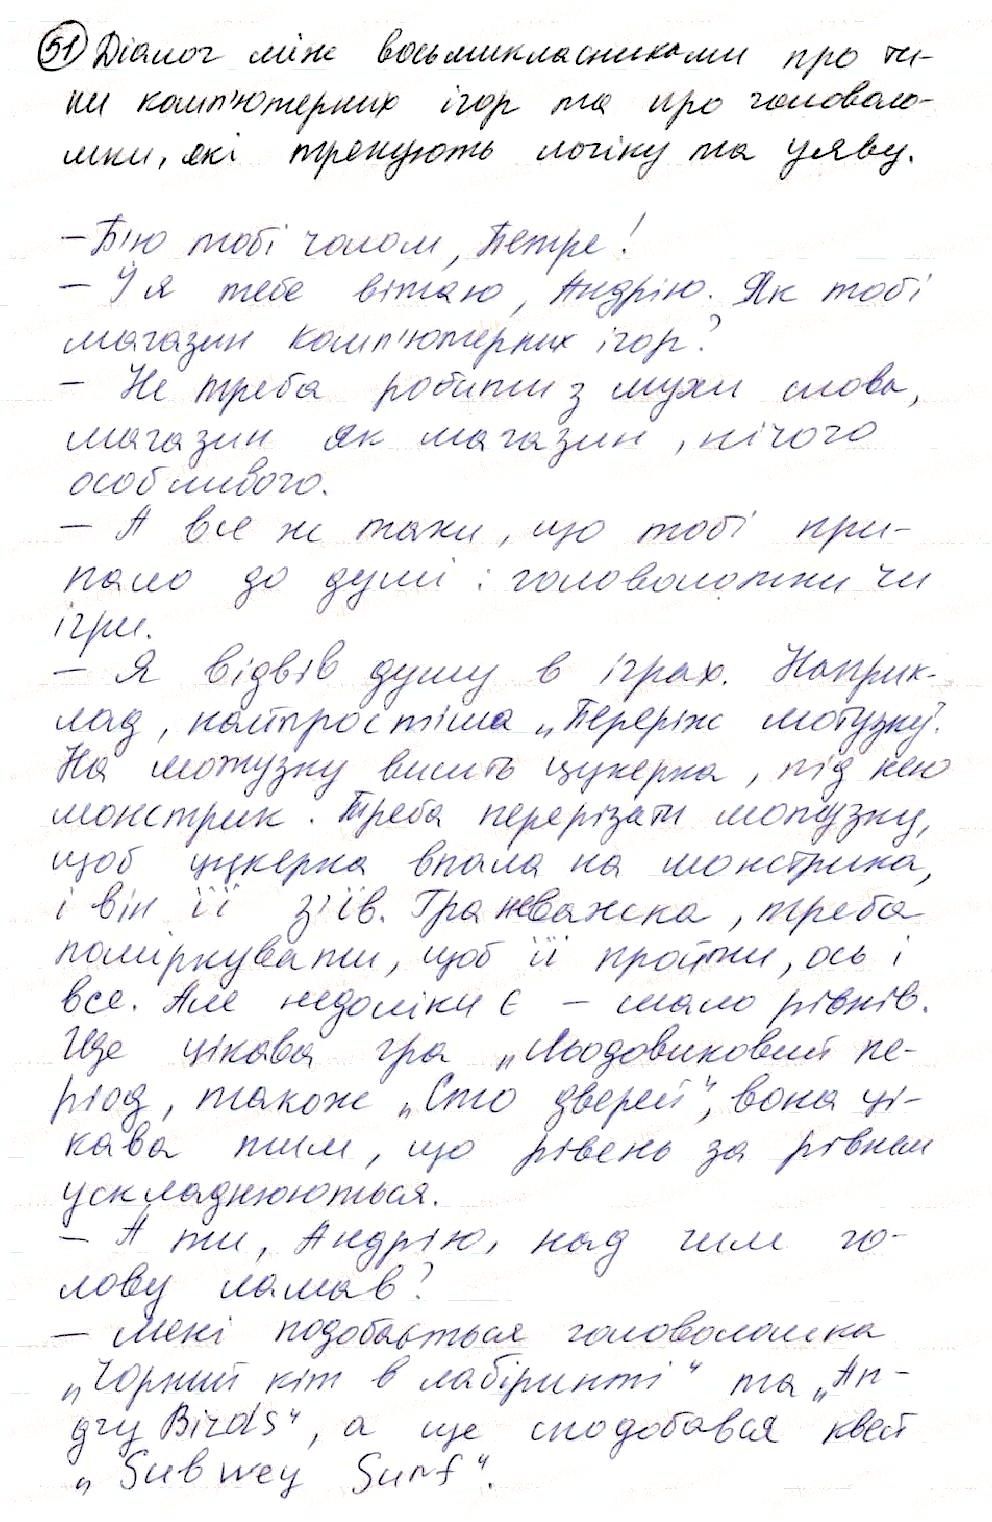 51 Діалог між восьмикласниками про ти-
пи комп'ютерних ігор та про головоло-
мки, які тренують логіку та уяву.
– Б'ю тобі чолом, Петре!
– І я тебе вітаю, Андрію. Як тобі
магазин комп'ютерних ігор?
– Не треба робити з мухи слова,
магазин як магазин, нічого
особливого.
– А все ж таки, що тобі при-
пало до душі: головоломки чи
ігри.
– Я відвів душу в іграх. Наприк-
лад, найпростіша „Переріж мотузку".
На мотузку висить цукерка, під нею
монстрик. Треба перерізати мотузку,
щоб цукерка впала на монстрика,
і він її з'їв. Гра неважка, треба
поміркувати, щоб її пройти, ось і
все. Але недоліки є – мало рівнів.
Ще цікава гра „Льодовиковий пе-
ріод, також „Сто дверей", вона ці-
кава тим, що рівень за рівнем
ускладнюються.
– А ти, Андрію, над чим го-
лову ламав?
– Мені подобається головоломка
„Чорний кіт в лабіринті" та „An-
gry Birds", а ще сподобався квест
„Subwey Surf".